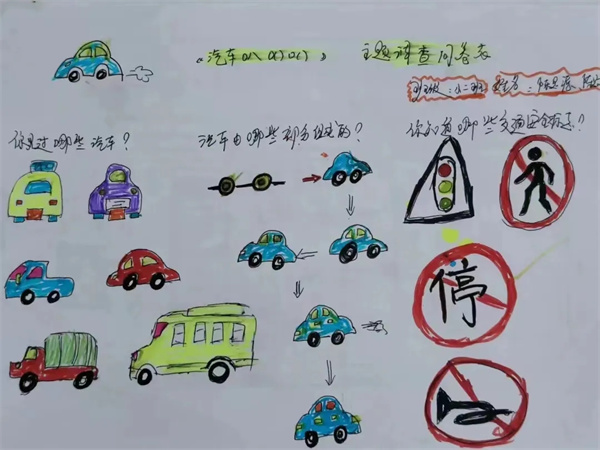 《汽车叭叭叭》 主题调查问卷表
班级：小二班 姓名：陈
你见过哪些汽车？
汽车由哪些部分组成的？
你知道哪些交通安全标志？
停